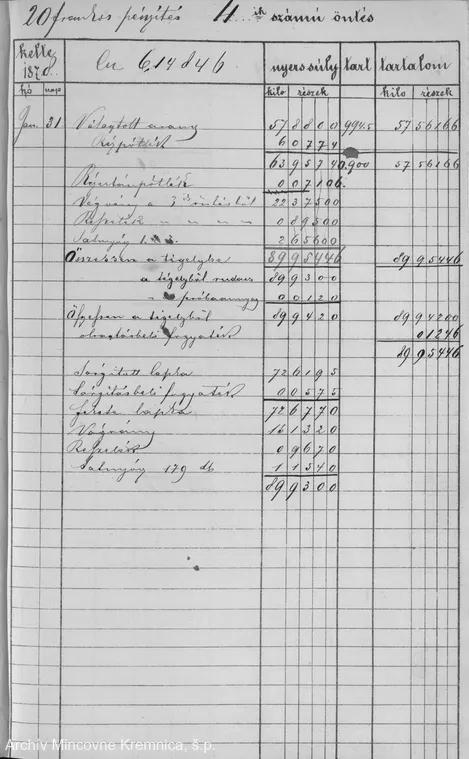 20 frankos pénzítés 11 ik számú öntés
kelte 1870. Cu 6,14846 nyerssúly tart tartalom
hó nap kiló részek kiló részek
Jan. 31 Választott arany 57 8800 994.5 57 56166
Rézpótlék 6 0774
63 95740 0.900 57 56166
Rézutánpótlék 00 7106
Végvány a 3 22 37500
Reszelék " " " " 0 89500
Salnyág 1. 3. 2 65600
Összessen a tégelybe 89 95446 89 95446
a tégelyből rudacs 89 9300
" próbaanyag 00 120
Összessen a tégelyből 89 9420 89 94200
olvasztásbeli fogyaték 01246
89 95446
Sárgított lapka 72 6195
Sárgításbeli fogyaték 00 575
fekete lapka 72 6770
Vágvány 16 1320
Reszelék 0 9670
Salnyág 179 db 1 1540
89 9300
Archív Mincovne Kremnica, š.p.